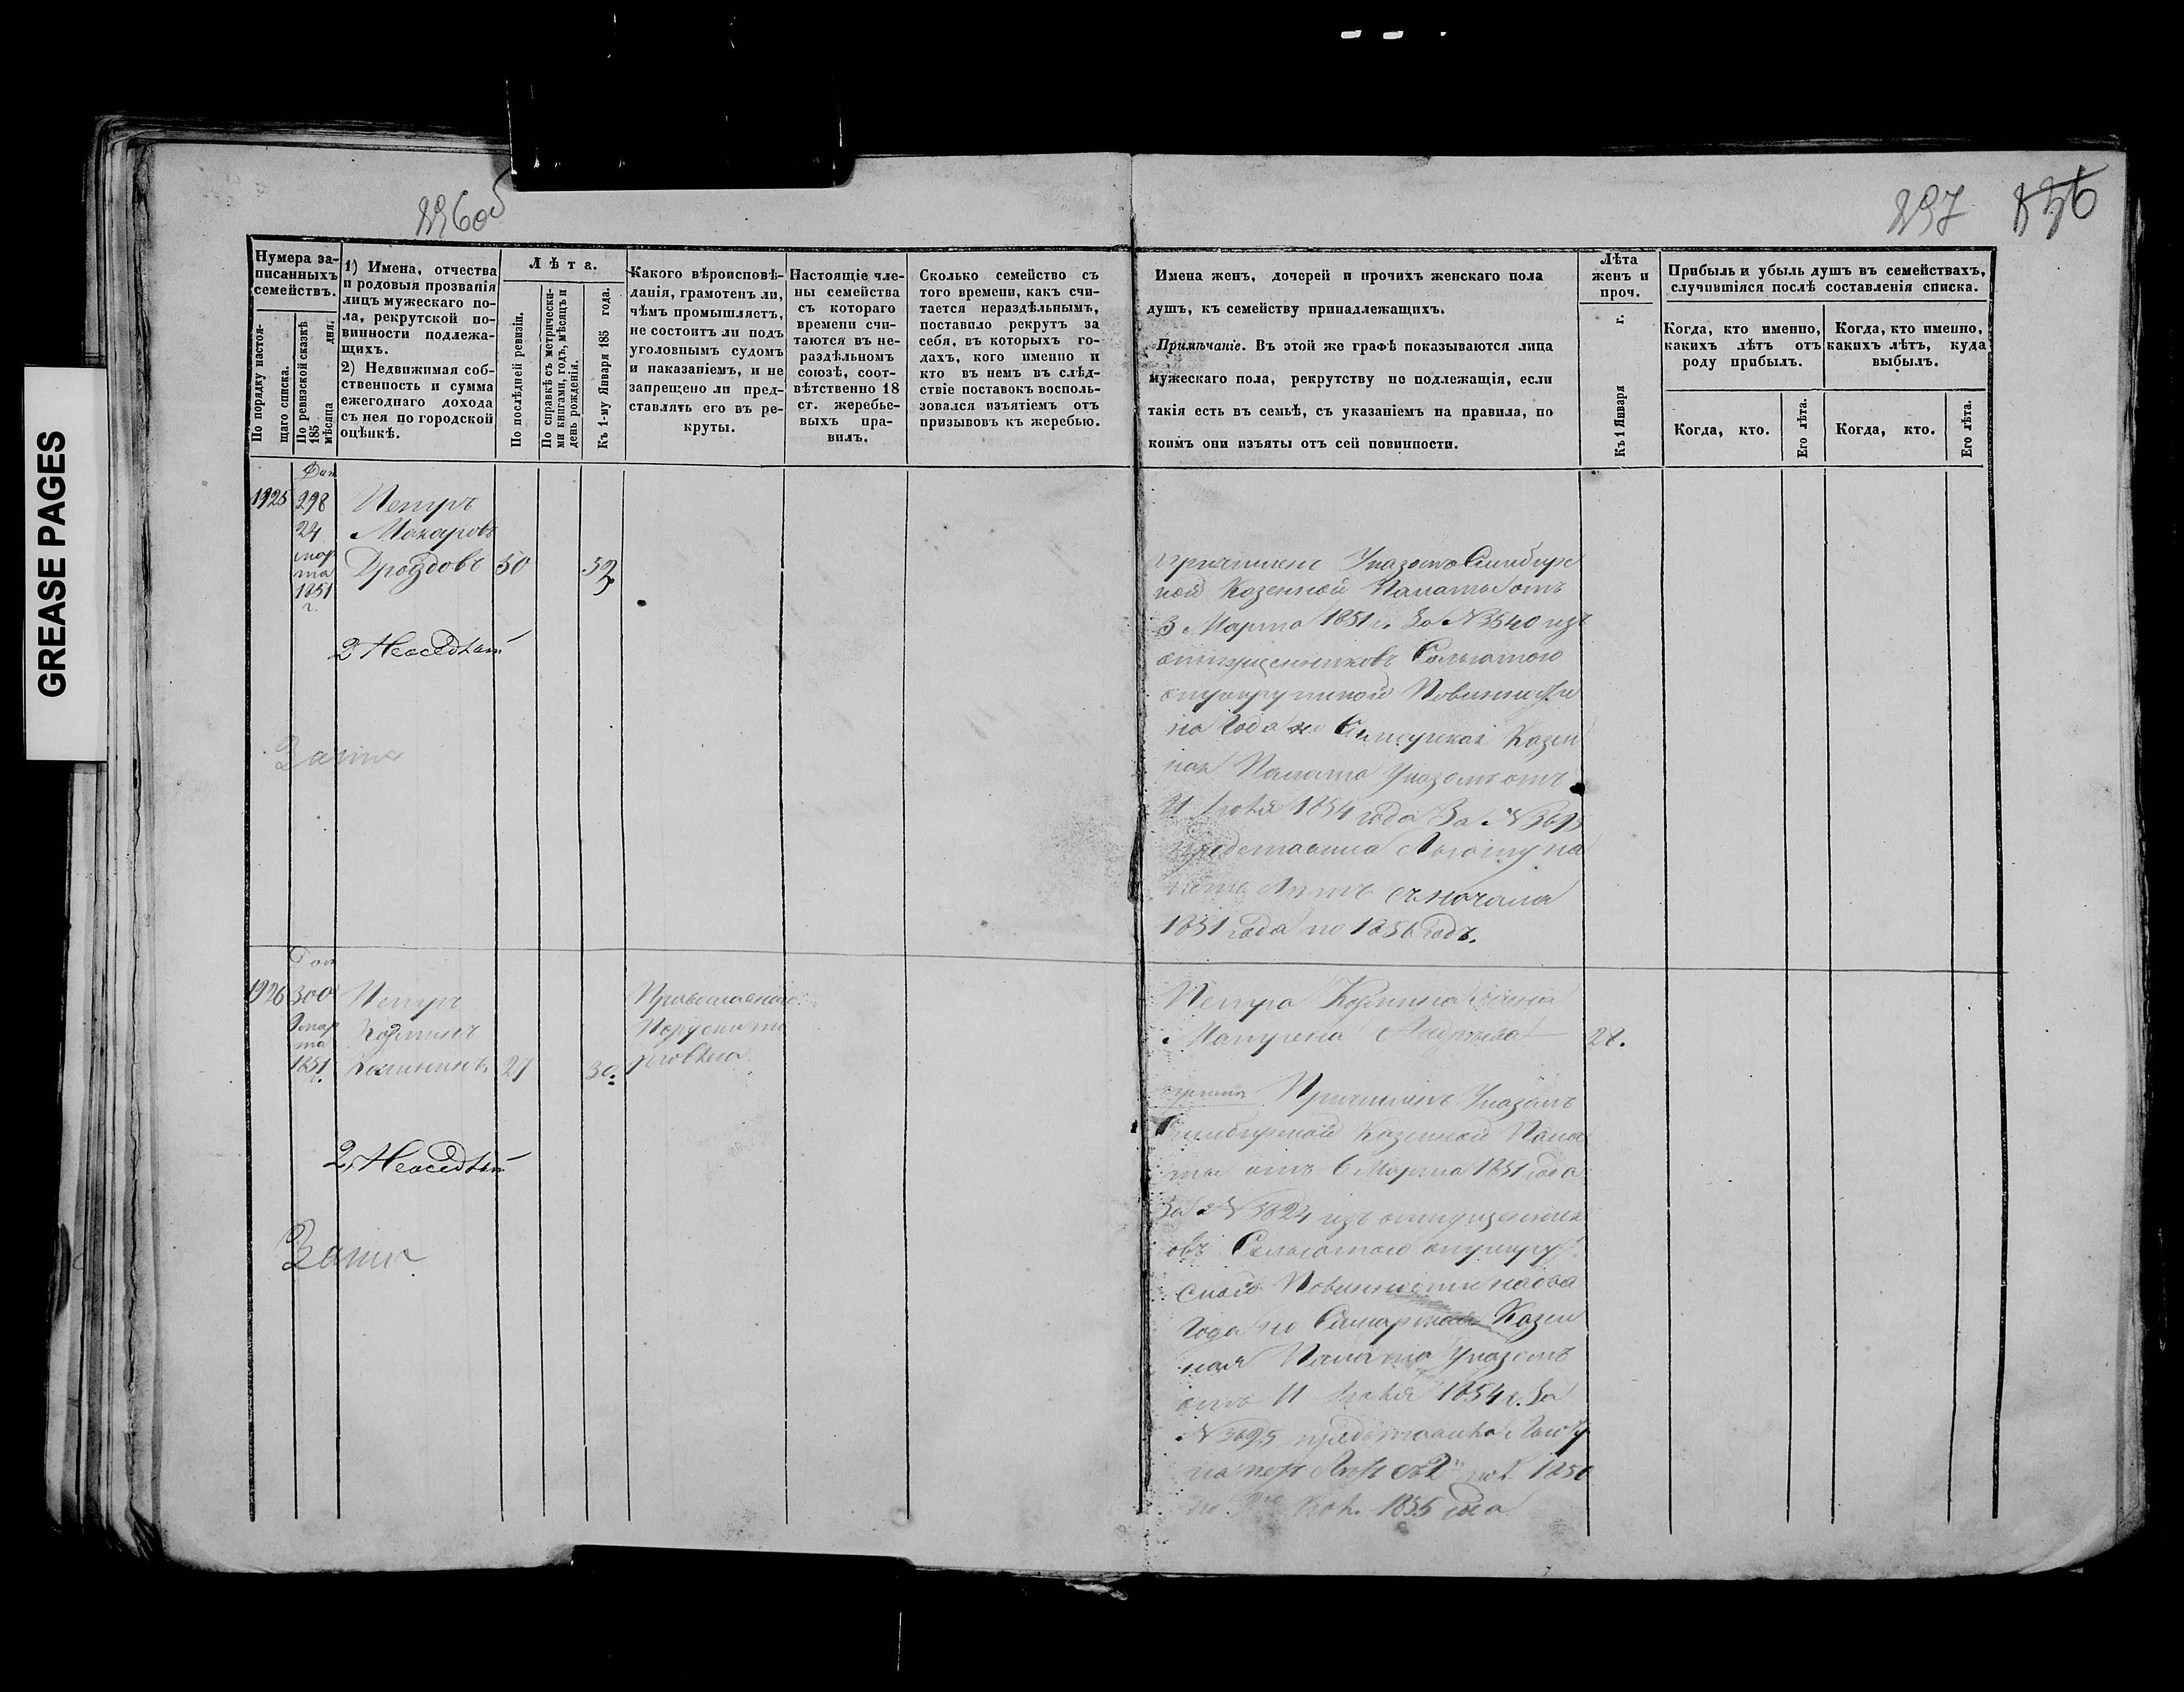 GREASE PAGES
236об
237 836
Нумера за-
писанныхъ
семействъ.
По порядку настоя-
щаго списка.
По ревизской сказкѣ
185 дня.
мѣсяца
1) Имена, отчества
и родовыя прозванія
лицъ мужескаго по-
ла, рекрутской по-
винности подлежа-
щихъ.
2) Недвижимая соб-
ственность и сумма
ежегоднаго дохода
съ нея по городской
оцѣнкѣ.
Лѣта.
По послѣдней ревизіи.
По справкѣ съ метрически-
ми книгами, годъ, мѣсяцъ и
день рожденія.
Къ 1-му Января 185 года.
Какого вѣроисповѣ-
данія, грамотенъ ли,
чѣмъ промышляетъ,
не состоитъ ли подъ
уголовнымъ судомъ
и наказаніемъ, и не
запрещено ли пред-
ставлять его въ ре-
круты.
Настоящіе чле-
ны семейства
съ котораго
времени счи-
таются въ не-
раздѣльномъ
союзѣ, соот-
вѣтственно 18
ст. жеребье-
выхъ пра-
вилъ.
Сколько семейство съ
того времени, какъ счи-
тается нераздѣльнымъ,
поставило рекрутъ за
себя, въ которыхъ го-
дахъ, кого именно и
кто въ немъ въ слѣд-
ствіе поставокъ восполь-
зовался изъятіемъ отъ
призывовъ къ жеребью.
Имена женъ, дочерей и прочихъ женскаго пола
душъ, къ семейству принадлежащихъ.
Примѣчаніе. Въ этой же графѣ показываются лица
мужескаго пола, рекрутству не подлежащія, если
такія есть въ семьѣ, съ указаніемъ на правила, по
коимъ они изъяты отъ сей повинности.
Лѣта
женъ и
проч.
Къ 1 Января г.
Прибыль и убыль душъ въ семействахъ,
случившіяся послѣ составленія списка.
Когда, кто именно,
какихъ лѣтъ отъ
роду прибылъ.
Когда, кто именно,
какихъ лѣтъ, куда
выбылъ.
Когда, кто.
Его лѣта.
Когда, кто.
Его лѣта.
Доп
1925 298 Петръ
24 Макаровъ
мар
та Дроздовъ 50 52
1851
г.
2 Неосѣдлый
Причисленъ Указомъ Симбирс
кой Казенной Палаты отъ
3 Марта 1851 г. За №3540 изъ
отпущенниковъ Сольготою
отъ рекрутской Повинности
на Года но Самарская Казен
ная Палата Указомъ отъ
11 1854 года За №3695
предоставила Льготу на
лѣтъ съ начала
1851 года по 1856 годъ.
Доп
1926 300 Петръ Православнаго
мар Козминъ По русски
та
1851 Калининъ 27 30.
г.
2 Неосѣдлый
Петра Козмина жена
Матрена 28.
Причисленъ Указомъ
Симбирской Казенной Пала
ты отъ 6 Марта 1851 года
За №3824 изъ отпущенник
овъ Сольготою отъ рекрут
ской Повинности на два
Года но Самарская Казен
ная Палата Указомъ
отъ 11 1854 г. За
№3695 предоставила Льготу
на 1850
по 1855 года